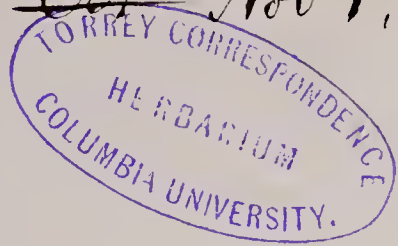 Nov 1,
TORREY CORRESPONDENCE
HERBARIUM
COLUMBIA UNIVERSITY.